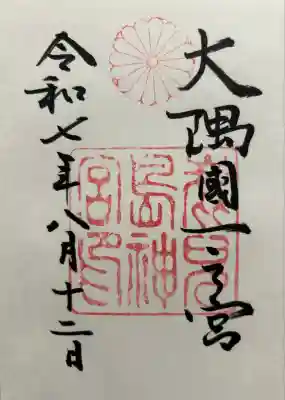 大隅國一之宮
鹿兒
島神
宮印
令和七年八月十二日